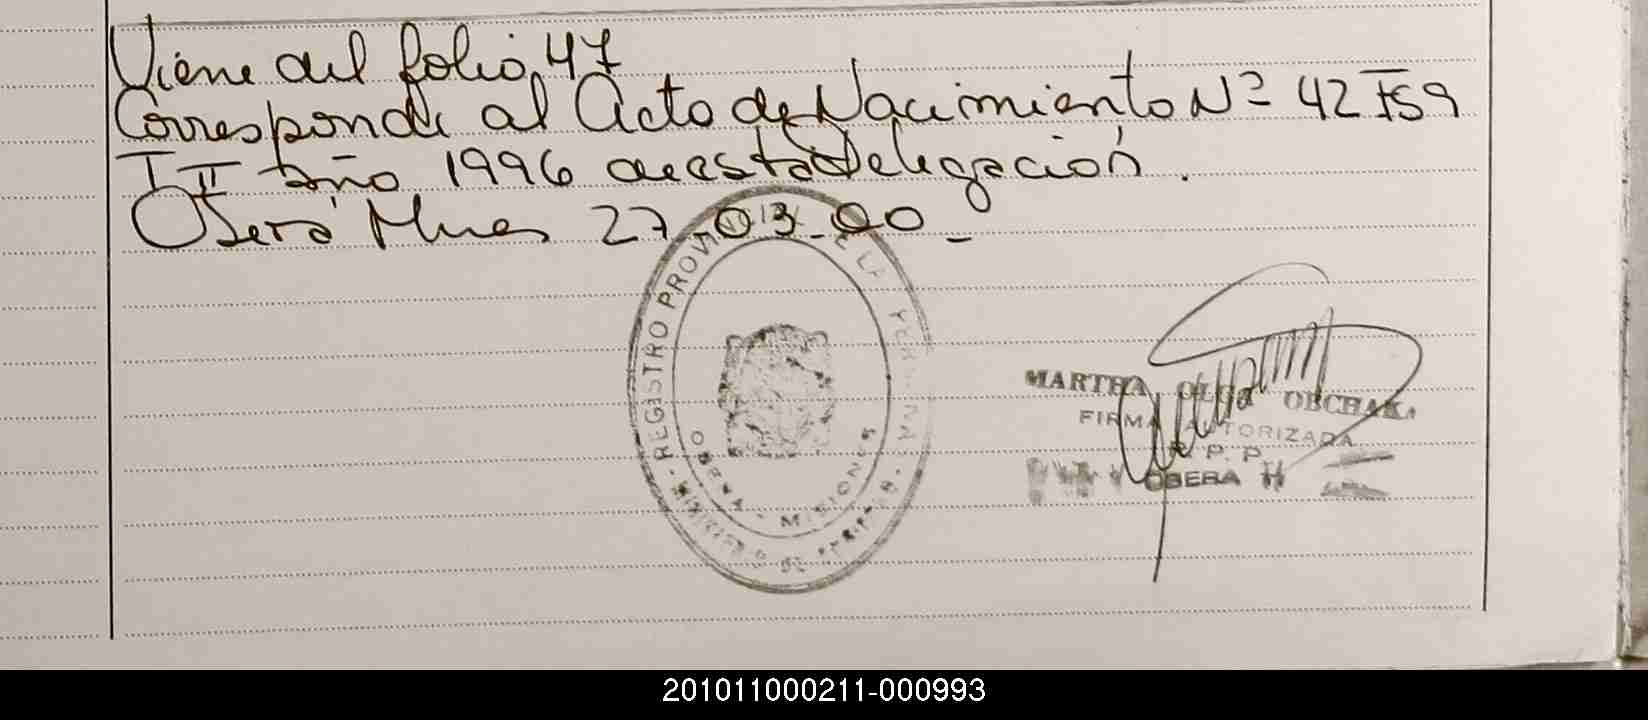 Viene del folio 47
Corresponde al Acta de Nacimiento Nº 42 F59
T II Año 1996 de esta Delegación.
Oberá Mnes 27-03-00-
REGISTRO PROVINCIAL DE LA PERSONAS
OBERA - MISIONES
MARTHA OLGA OBCHAK
FIRMA AUTORIZADA
R. P. P.
OBERA
201011000211-000993